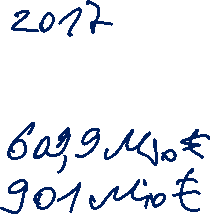 2017
609,9 Mio €
901 Mio €